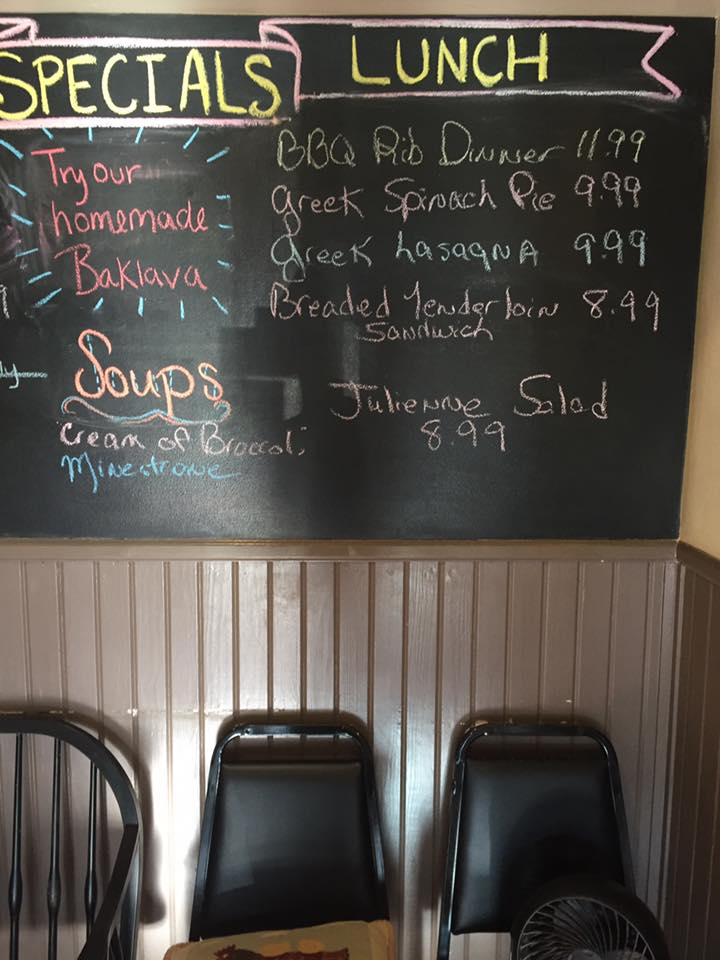 SPECIALS
LUNCH
Try our
homemade
Baklava
Soups
Cream of Broccoli
Minestrone
BBQ Rib Dinner 11.99
Greek Spinach Pie 9.99
Greek Lasagna 9.99
Breaded Tenderloin 8.99
Sandwich
Julienne Salad
8.99